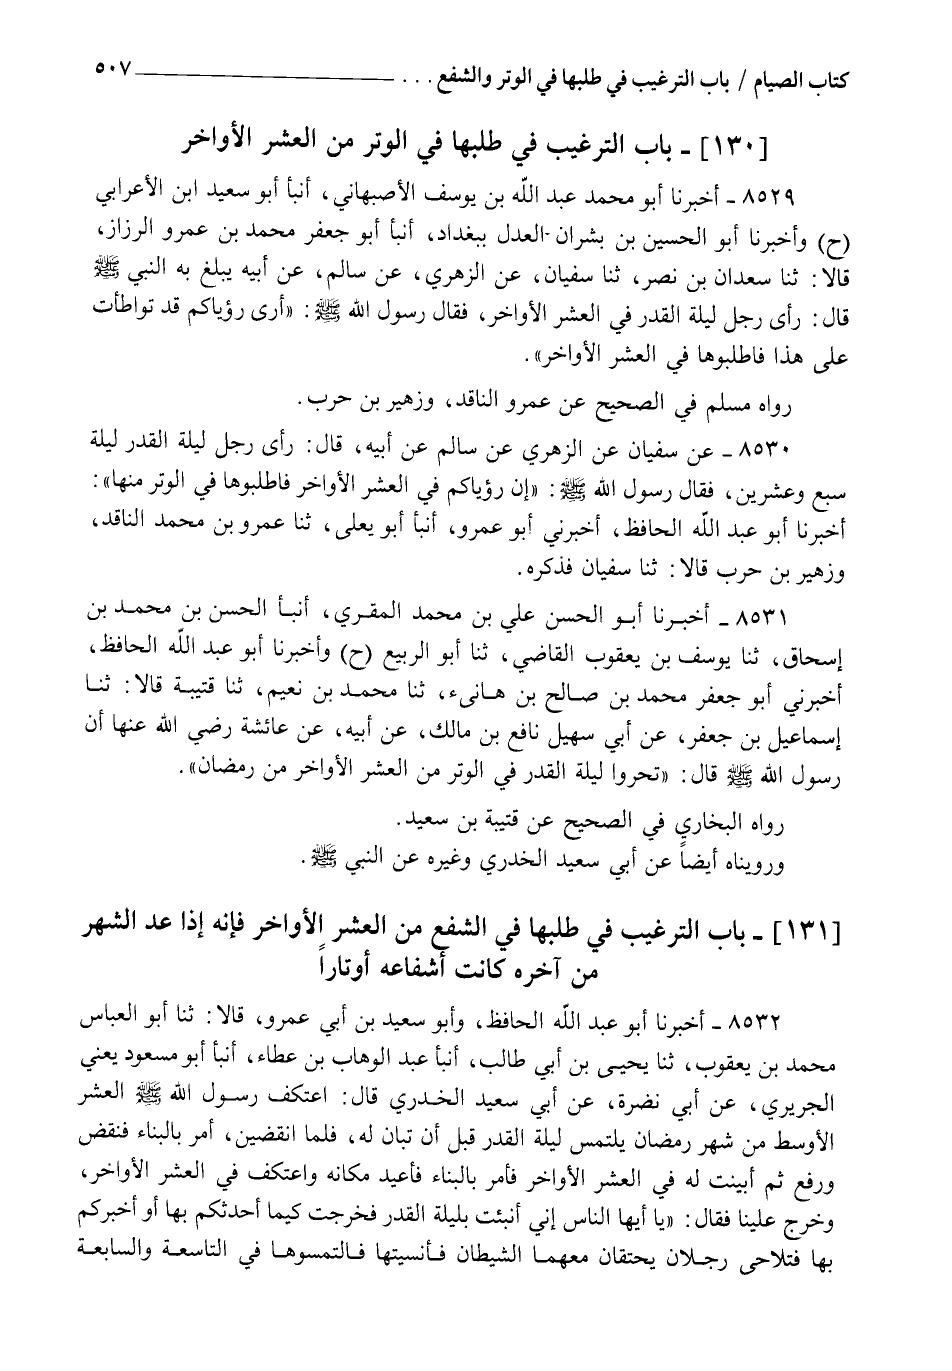 كتاب الصيام / باب الترغيب في طلبها في الوتر والشفع . . . ٥٠٧
[١٣٠] ـ باب الترغيب في طلبها في الوتر من العشر الأواخر
٨٥٢٩ ـ أخبرنا أبو محمد عبد اللّه بن يوسف الأصبهاني، أنبأ أبو سعيد ابن الأعرابي
(ح) وأخبرنا أبو الحسين بن بشران العدل ببغداد، أنبأ أبو جعفر محمد بن عمرو الرزاز،
قالا: ثنا سعدان بن نصر، ثنا سفيان، عن الزهري، عن سالم، عن أبيه يبلغ به النبي ﷺ
قال: رأى رجل ليلة القدر في العشر الأواخر، فقال رسول الله ﷺ: «أرى رؤياكم قد تواطأت
على هذا فاطلبوها في العشر الأواخر».
رواه مسلم في الصحيح عن عمرو الناقد، وزهير بن حرب.
٨٥٣٠ ـ عن سفيان عن الزهري عن سالم عن أبيه، قال: رأى رجل ليلة القدر ليلة
سبع وعشرين، فقال رسول الله ﷺ: «إن رؤياكم في العشر الأواخر فاطلبوها في الوتر منها»:
أخبرنا أبو عبد اللّه الحافظ، أخبرني أبو عمرو، أنبأ أبو يعلى، ثنا عمرو بن محمد الناقد،
وزهير بن حرب قالا: ثنا سفيان فذكره.
٨٥٣١ ـ أخبرنا أبو الحسن علي بن محمد المقري، أنبأ الحسن بن محمد بن
إسحاق، ثنا يوسف بن يعقوب القاضي، ثنا أبو الربيع (ح) وأخبرنا أبو عبد اللّه الحافظ،
أخبرني أبو جعفر محمد بن صالح بن هانىء، ثنا محمد بن نعيم، ثنا قتيبة قالا: ثنا
إسماعيل بن جعفر، عن أبي سهيل نافع بن مالك، عن أبيه، عن عائشة رضي الله عنها أن
رسول الله ﷺ قال: «تحروا ليلة القدر في الوتر من العشر الأواخر من رمضان».
رواه البخاري في الصحيح عن قتيبة بن سعيد.
ورويناه أيضاً عن أبي سعيد الخدري وغيره عن النبي ﷺ.
[١٣١] ـ باب الترغيب في طلبها في الشفع من العشر الأواخر فإنه إذا عد الشهر
من آخره كانت أشفاعه أوتاراً
٨٥٣٢ ـ أخبرنا أبو عبد اللّه الحافظ، وأبو سعيد بن أبي عمرو، قالا: ثنا أبو العباس
محمد بن يعقوب، ثنا يحيى بن أبي طالب، أنبأ عبد الوهاب بن عطاء، أنبأ أبو مسعود يعني
الجريري، عن أبي نضرة، عن أبي سعيد الخدري قال: اعتكف رسول الله ﷺ العشر
الأوسط من شهر رمضان يلتمس ليلة القدر قبل أن تبان له، فلما انقضين، أمر بالبناء فنقض
ورفع ثم أبينت له في العشر الأواخر فأمر بالبناء فأعيد مكانه واعتكف في العشر الأواخر،
وخرج علينا فقال: «يا أيها الناس إني أنبئت بليلة القدر فخرجت كيما أحدثكم بها أو أخبركم
بها فتلاحى رجلان يحتقان معهما الشيطان فأنسيتها فالتمسوها في التاسعة والسابعة